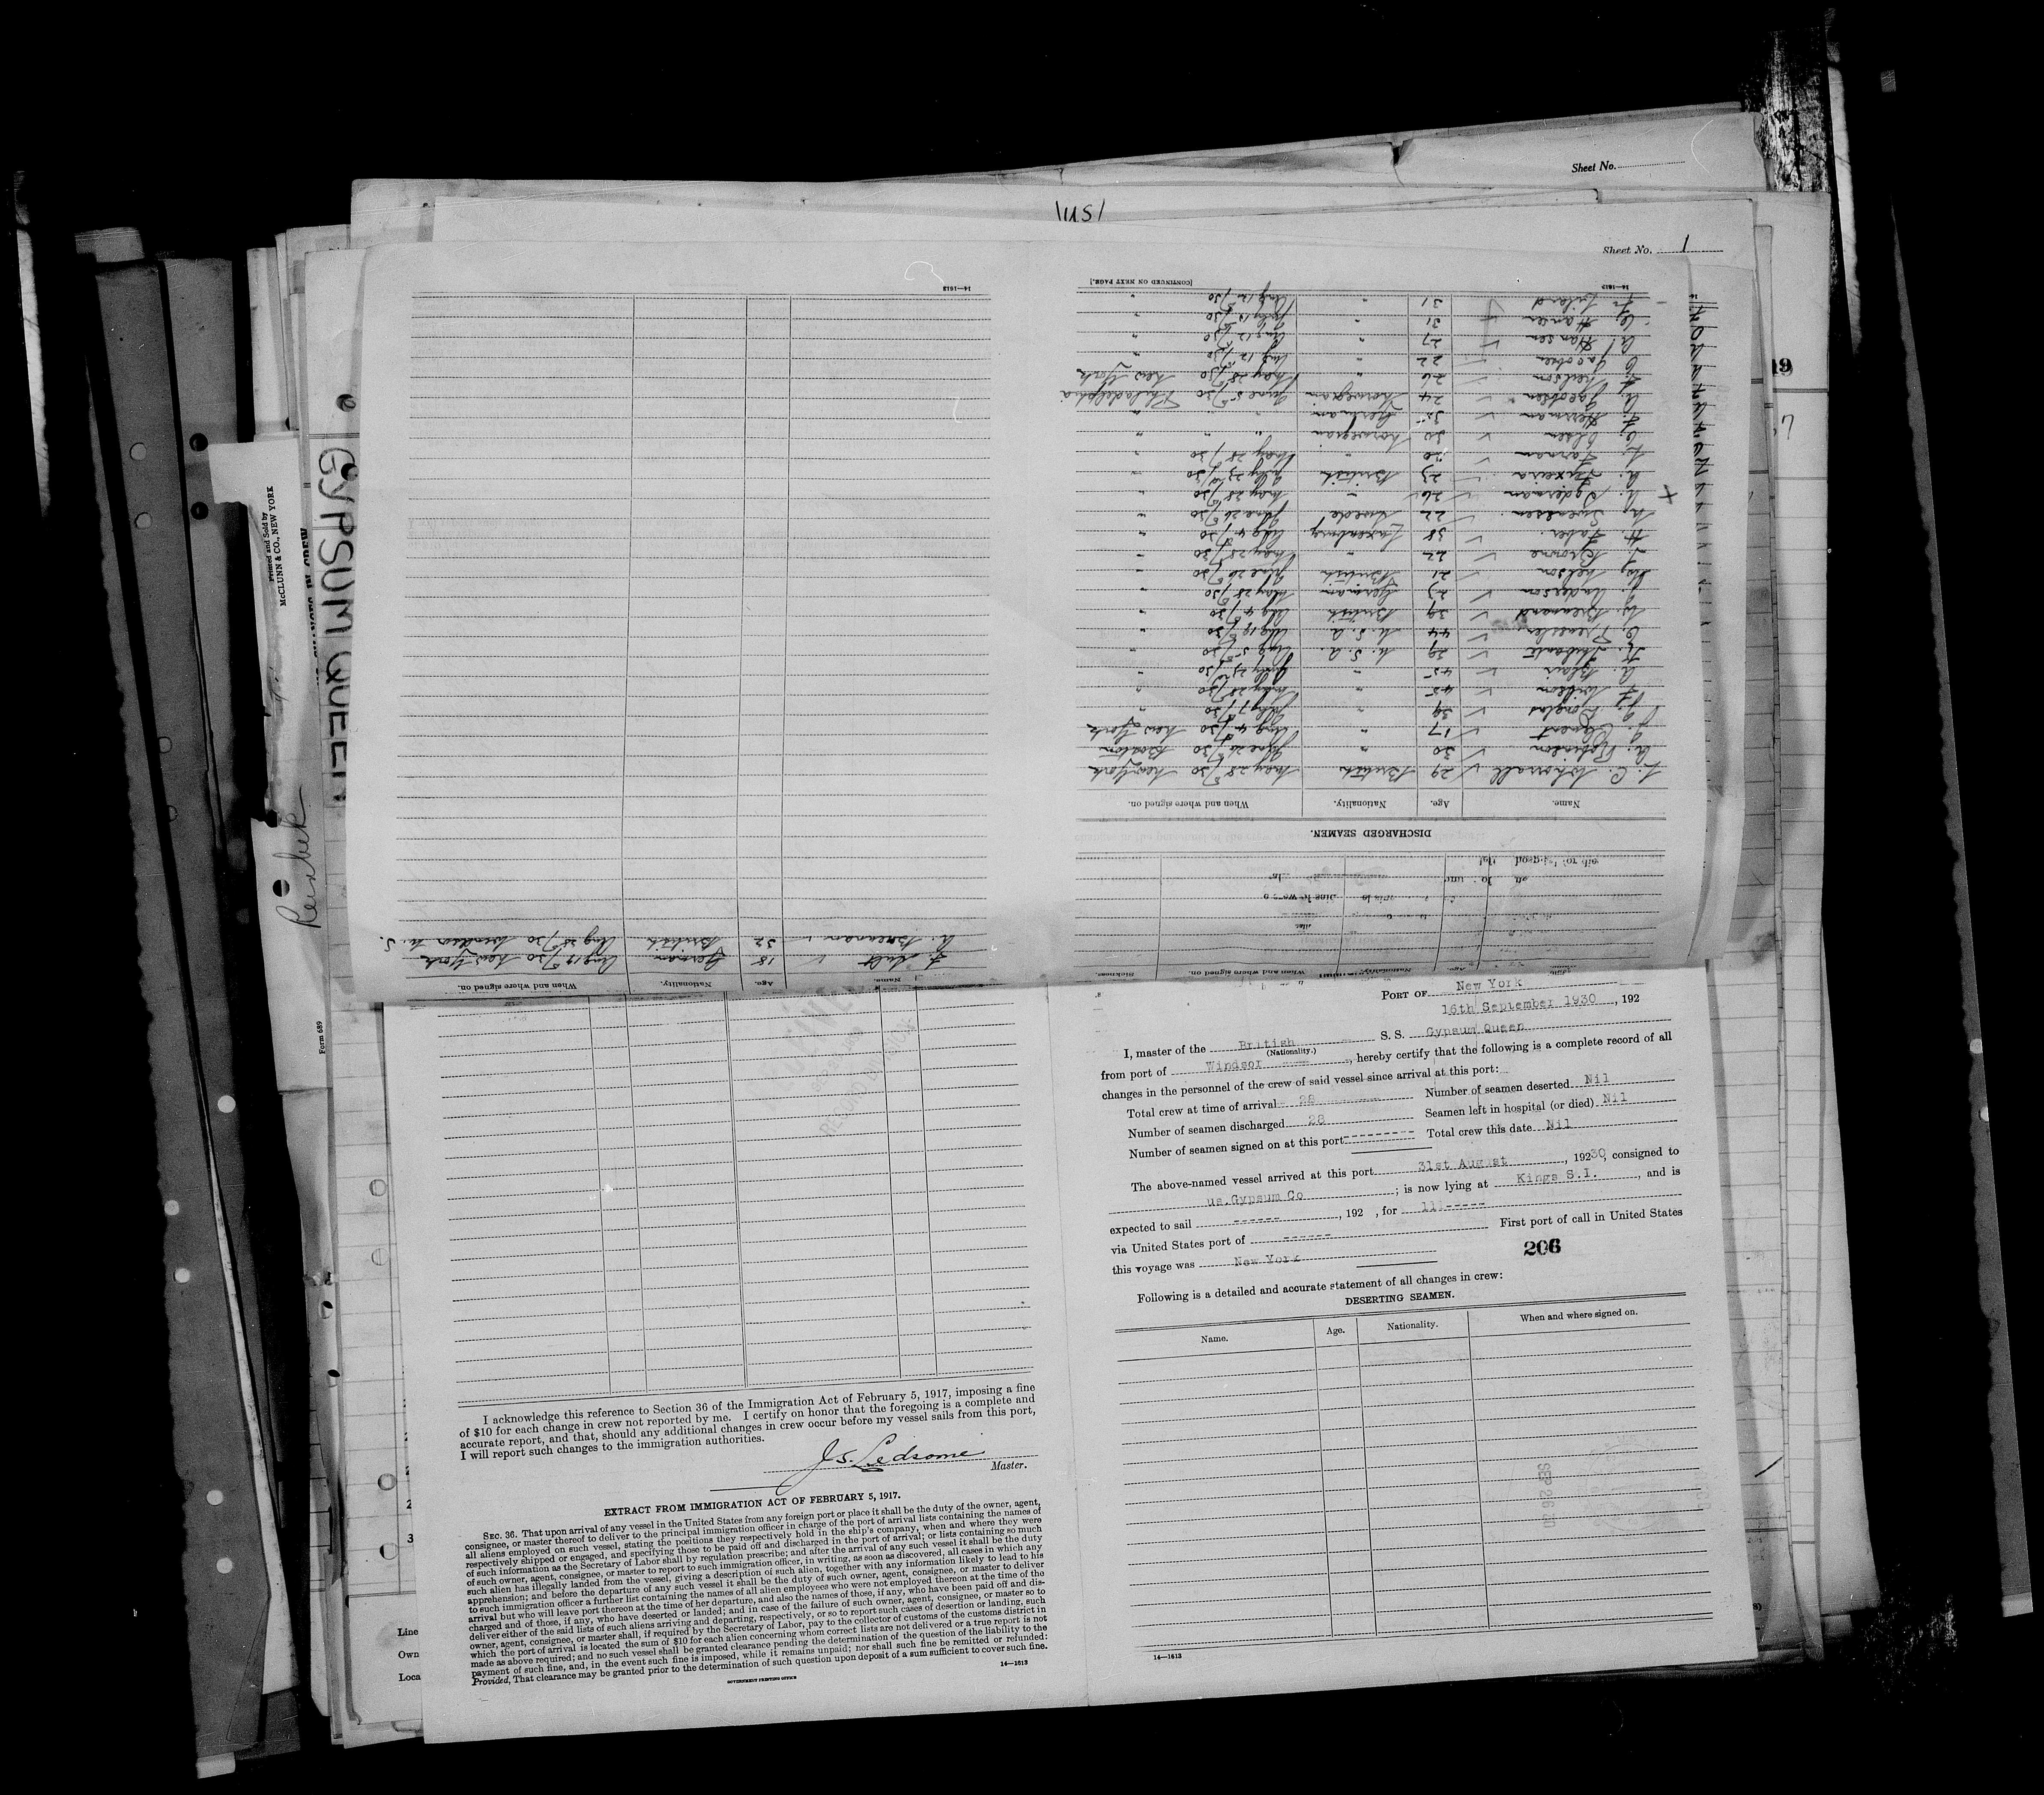 Sheet No.
\us/
Sheet No. 1
Printed and Sold by
McCLUNN & CO., NEW YORK
GYPSUM QUEEN
Form 689
DISCHARGED SEAMEN.
Name. Age. Nationality. When and where signed on.
29 British May 28/30 New York
A. Robinson 30 " June 26/30 Boston
17 " Aug 4/30 New York
J. Douglas 39 " July 7/30 "
F. Wilson 45 " May 28/30 "
A. Blair 45 " July 23/30 "
39 U.S.A. Aug 5/30 "
C. Pressler 44 U.S.A. Aug 19/30 "
W. Brennand 39 British Aug 4/30 "
J. Anderson 23 German May 28/30 "
Nelson 21 British June 26/30 "
J. Browne 22 " May 28/30 "
H. Faber 38 Luxenburg Aug 4/30 "
Swensen 22 Swede June 26/30 "
A. Pederman 26 " May 28/30 "
A. Texeira 23 British July 23/30 "
Farnan 20 " May 28/30 "
Olsen 30 Norwegian " " "
F. Herrman 35 German " "
A. Jacobsen 24 Norwegian June 5/30 Philadelphia
Neilson 26 " May 28/30 New York
C. Jacobsen 22 " Aug 12/30 "
A. Hansen 27 " Aug 12/30 "
C. Hansen 31 " July 12/30 "
31 " Aug 12/30 "
14—1613
[CONTINUED ON NEXT PAGE.]
Name. Age. Nationality. When and where signed on.
F. Sult 18 German Aug 19/30 New York
A. Brennan 32 British Aug 25/30 Windsor N.S.
14—1613
PORT OF New York
16th September 1930, 192
I, master of the British S. S. Gypsum Queen
(Nationality.)
from port of Windsor, hereby certify that the following is a complete record of all
changes in the personnel of the crew of said vessel since arrival at this port:
Total crew at time of arrival 28 Number of seamen deserted Nil
Number of seamen discharged 28 Seamen left in hospital (or died) Nil
Number of seamen signed on at this port -------- Total crew this date Nil
The above-named vessel arrived at this port 31st August, 19230, consigned to
us.Gypsum Co; is now lying at Kings S.I., and is
expected to sail ------, 192 , for 111-----
via United States port of ------ First port of call in United States
this voyage was New York
206
Following is a detailed and accurate statement of all changes in crew:
DESERTING SEAMEN.
Name. Age. Nationality. When and where signed on.
SEP 26 30
14—1613
I acknowledge this reference to Section 36 of the Immigration Act of February 5, 1917, imposing a fine
of $10 for each change in crew not reported by me. I certify on honor that the foregoing is a complete and
accurate report, and that, should any additional changes in crew occur before my vessel sails from this port,
I will report such changes to the immigration authorities.
J.S. Ledsome
Master.
EXTRACT FROM IMMIGRATION ACT OF FEBRUARY 5, 1917.
SEC. 36. That upon arrival of any vessel in the United States from any foreign port or place it shall be the duty of the owner, agent,
consignee, or master thereof to deliver to the principal immigration officer in charge of the port of arrival lists containing the names of
all aliens employed on such vessel, stating the positions they respectively hold in the ship's company, when and where they were
respectively shipped or engaged, and specifying those to be paid off and discharged in the port of arrival; or lists containing so much
of such information as the Secretary of Labor shall by regulation prescribe; and after the arrival of any such vessel it shall be the duty
of such owner, agent, consignee, or master to report to such immigration officer, in writing, as soon as discovered, all cases in which any
such alien has illegally landed from the vessel, giving a description of such alien, together with any information likely to lead to his
apprehension; and before the departure of any such vessel it shall be the duty of such owner, agent, consignee, or master to deliver
to such immigration officer a further list containing the names of all alien employees who were not employed thereon at the time of the
arrival but who will leave port thereon at the time of her departure, and also the names of those, if any, who have been paid off and dis-
charged and of those, if any, who have deserted or landed; and in case of the failure of such owner, agent, consignee, or master so to
deliver either of the said lists of such aliens arriving and departing, respectively, or so to report such cases of desertion or landing, such
owner, agent, consignee, or master shall, if required by the Secretary of Labor, pay to the collector of customs of the customs district in
which the port of arrival is located the sum of $10 for each alien concerning whom correct lists are not delivered or a true report is not
made as above required; and no such vessel shall be granted clearance pending the determination of the question of the liability to the
payment of such fine, and, in the event such fine is imposed, while it remains unpaid; nor shall such fine be remitted or refunded:
Provided, That clearance may be granted prior to the determination of such question upon deposit of a sum sufficient to cover such fine.
GOVERNMENT PRINTING OFFICE
14—1613
Line
Own
Loca